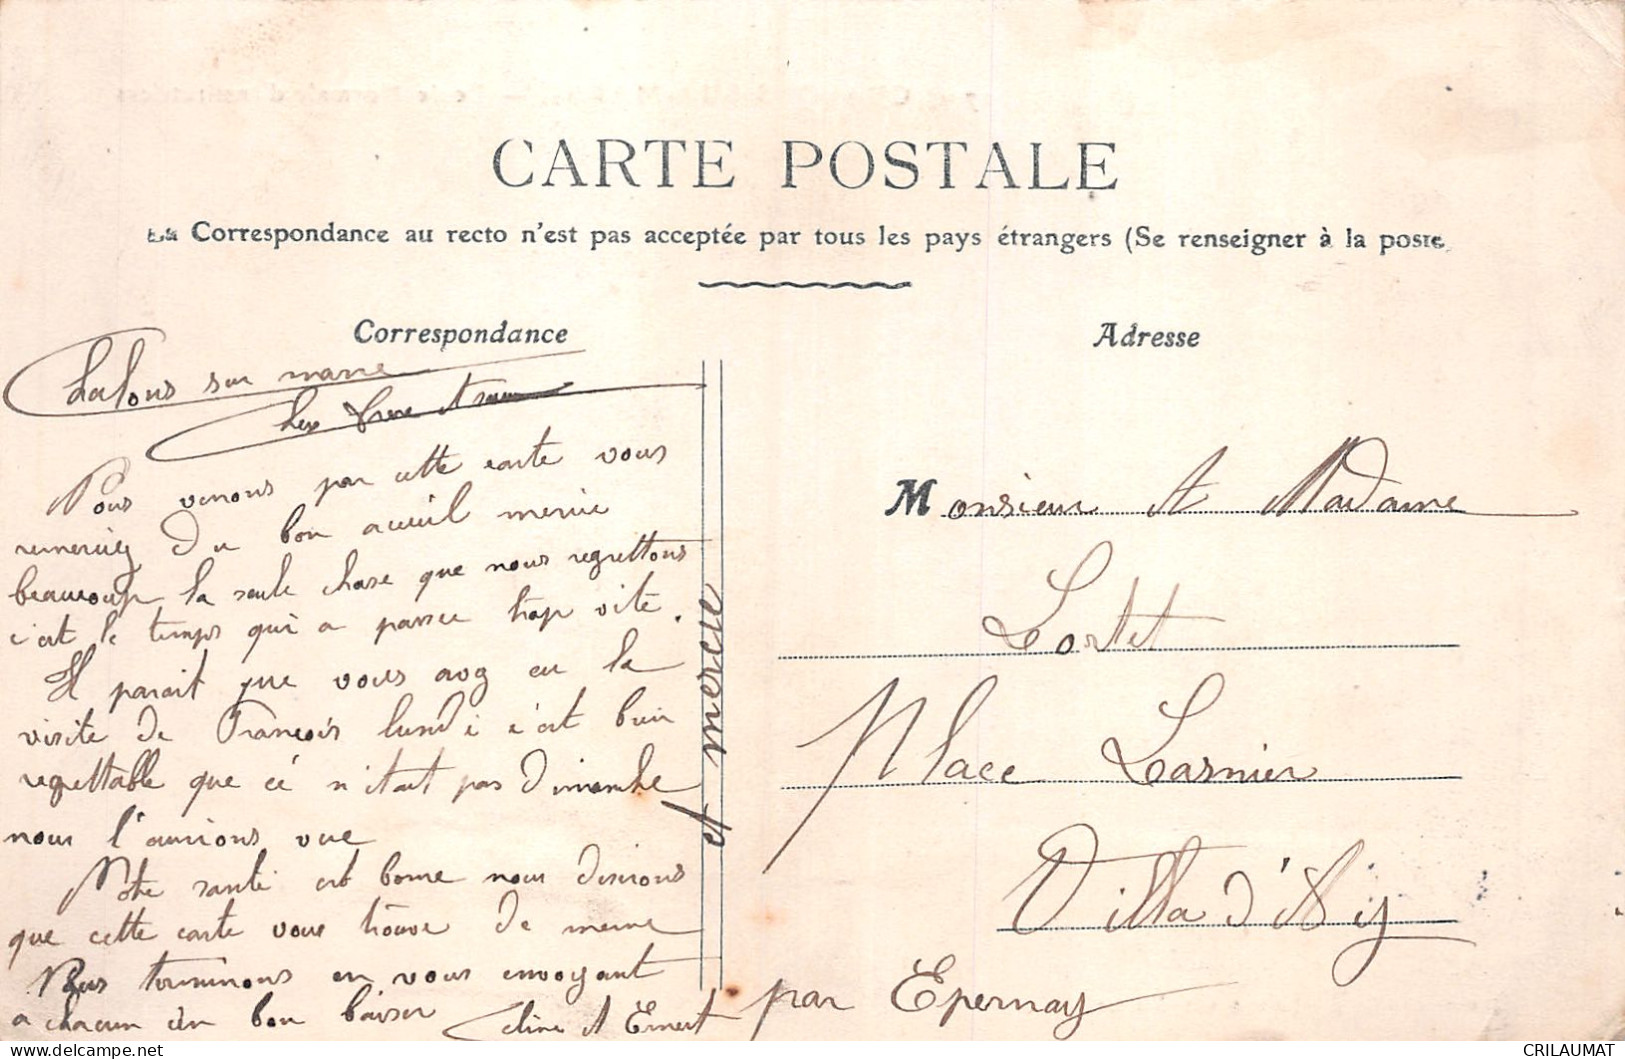 CARTE POSTALE
La Correspondance au recto n'est pas acceptée par tous les pays étrangers (Se renseigner à la poste
Correspondance
Chalons sur marne
Chez
Nous venons par cette carte vous
remercier Du bon acceuil mercie
beaucoup la seule chose que nous regrettons
c'est le temps qui a passer trop vite.
Il parait que vous avez eu la
visite de François lundi c'est bien
regrettable que cé n'était pas Dimanche
nous l'aurions vue
Notre santé est bonne nous désirons
que cette carte vous trouve De meme
Nous terminons en vous envoyant
a chacun un bon baiser Celine et Ernest
et mercie
Adresse
Monsieur et Madame
Lortet
Place Larnier
Villa d'
par Epernay
CRILAUMAT